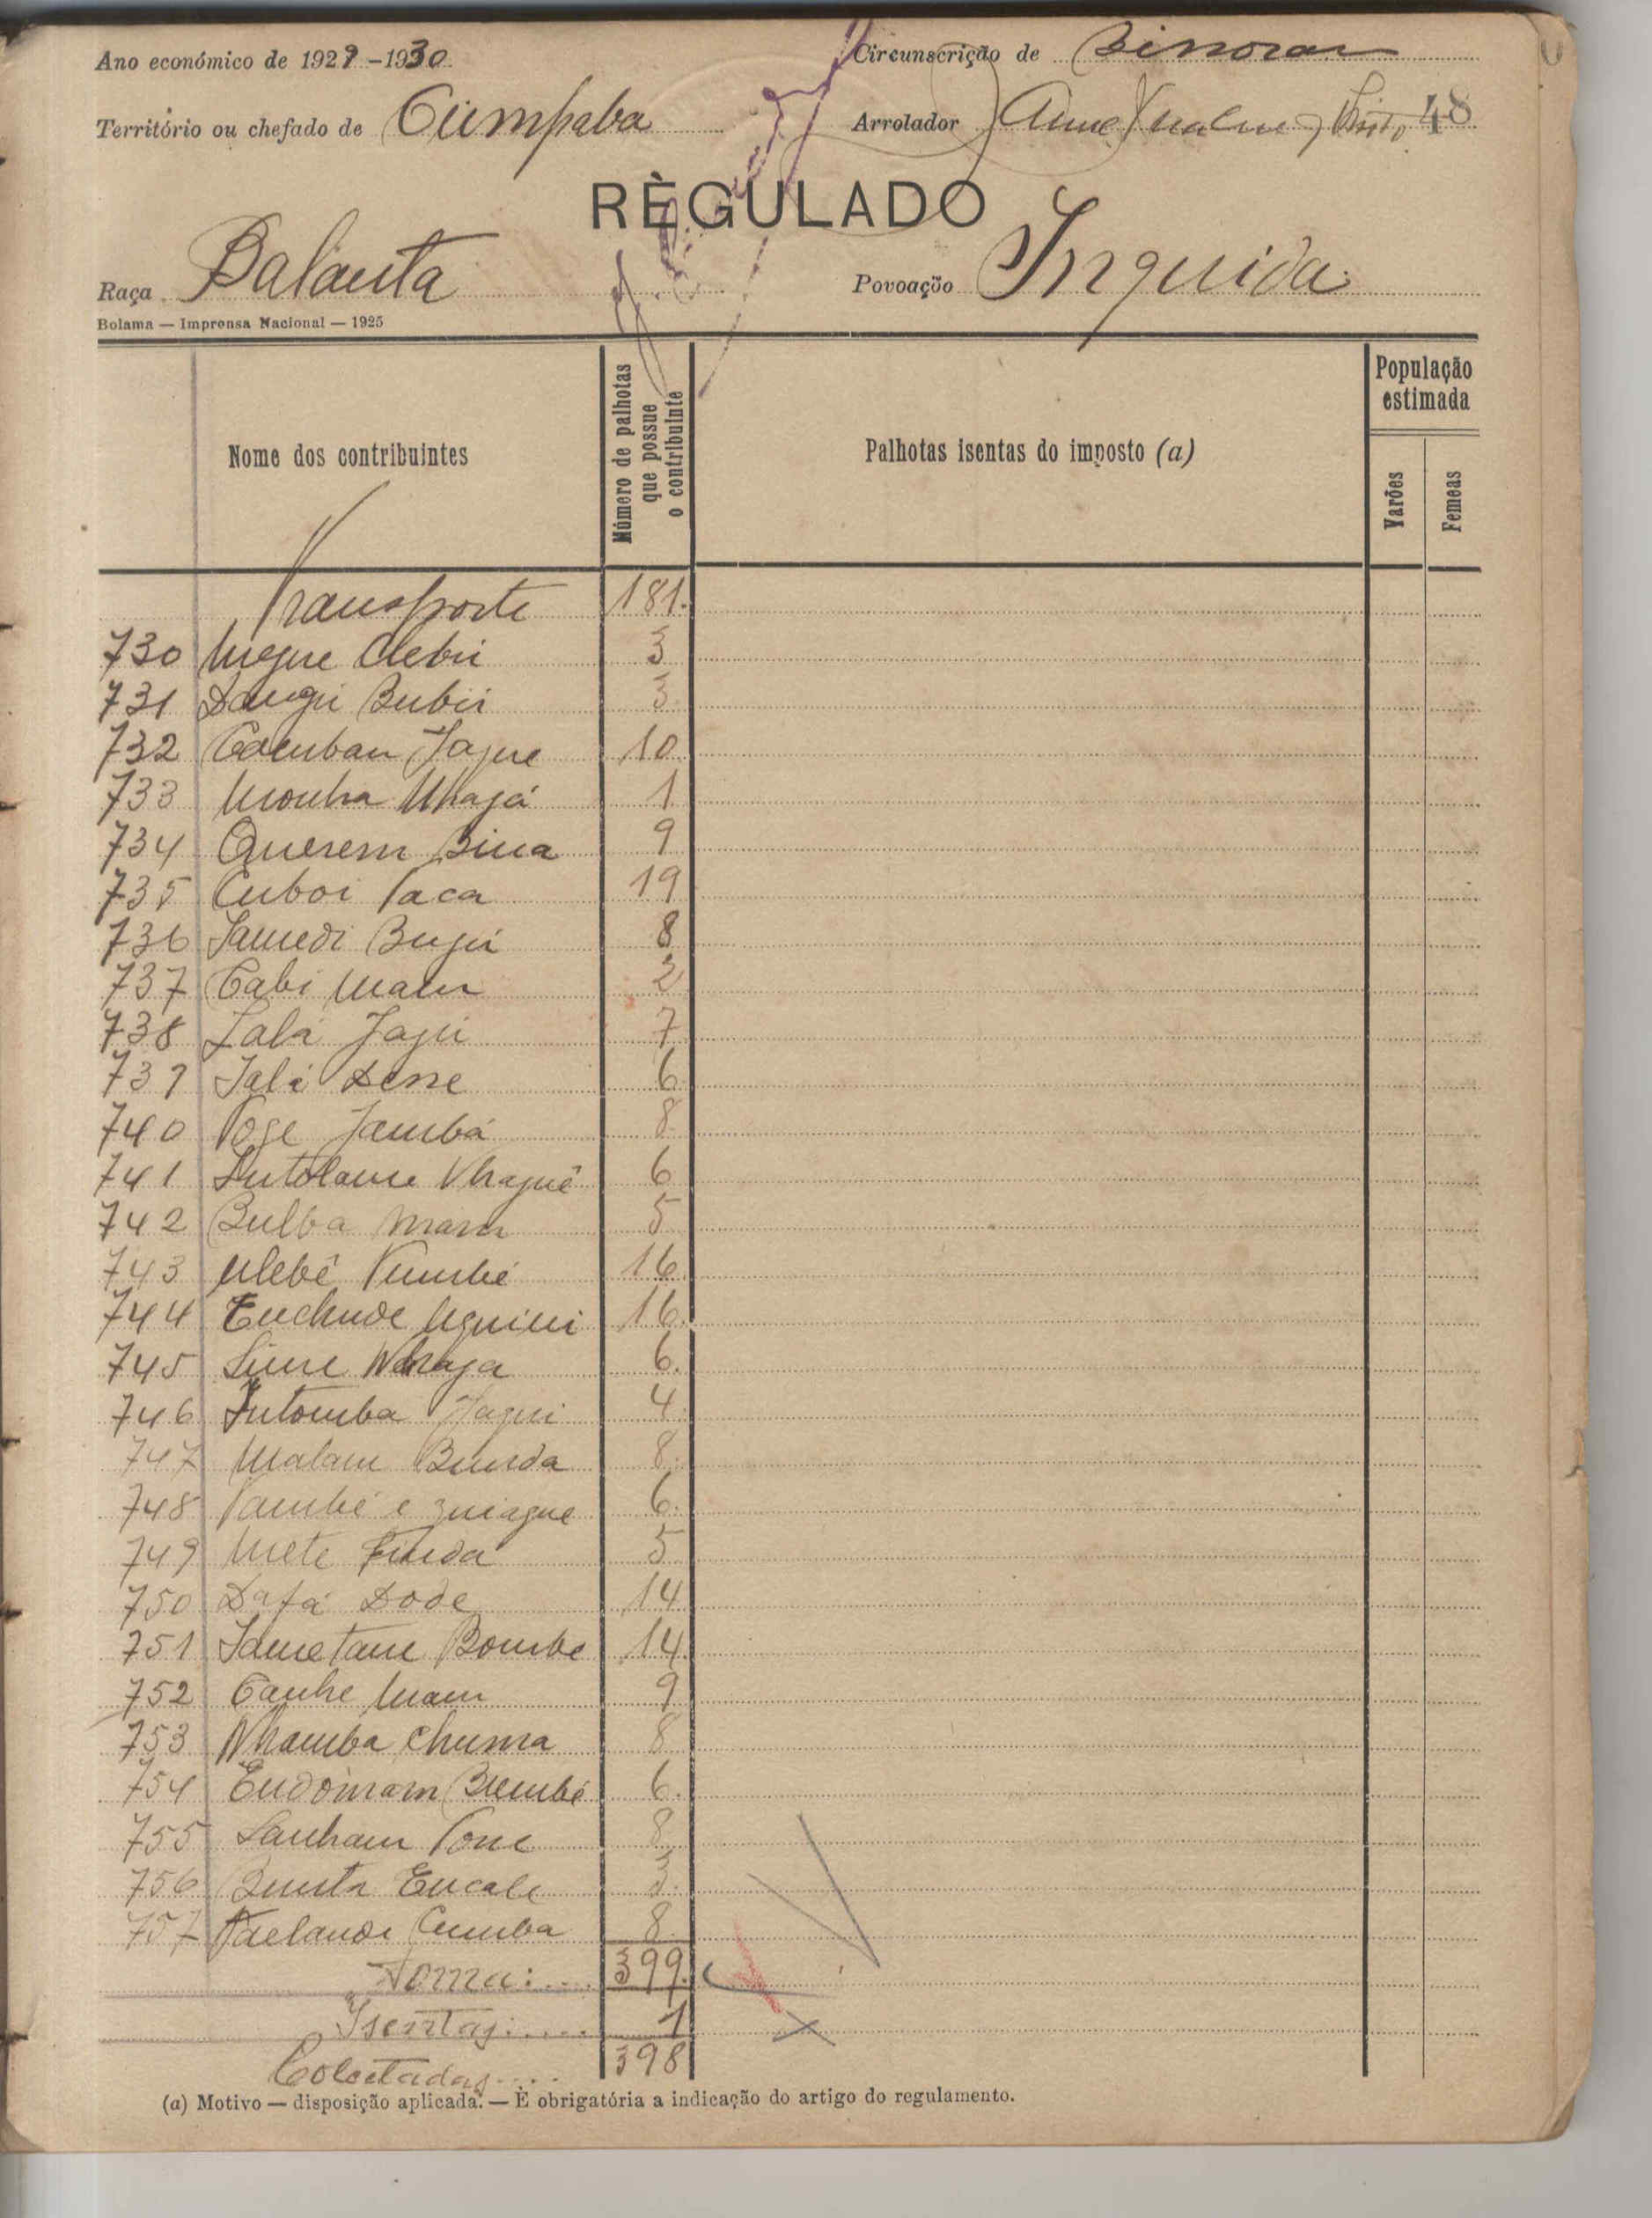 Ano económico de 1929-1930
Circunscrição de Bissoran
Território ou chefado de Cumpaba
Arrolador 48
RÈGULADO
Raça Balanta
Povoação Inquida
Bolama — Imprensa Nacional — 1925
Nome dos contribuintes
Número de palhotas que possue o contribuinte
Palhotas isentas do imposto (a)
População estimada
Varões
Femeas
Transporte 181
730 Clebú 3
731 Dangú Bubú 3
732 Camban Jague 10
733 Montra Nhagá 1
734 Querem Bina 9
735 Cuboi Paca 19
736 Samedi Bugú 8
737 Cabi Maen 2
738 Lalá Jagú 7
739 Jalá Dene 6
740 Voge Jambá 8
741 Intolame Nhagué 6
742 Bulba Mam 5
743 Alebê Vumbé 16
744 Enchude 16
745 Sine Nhaga 6
746 Intomba Jagui 4
747 Malam Bunda 8
748 Pambé e 6
749 Mete Funda 5
750 Dafá Dode 14
751 Sametam Bombe 14
752 Canhe Mam 9
753 Nhamba Chuma 8
754 Endomam Bumbé 6
755 Sanham Tone 8
756 Bunta Encale 3
757 Cumba 8
Soma: 399
Isentas: 1
Colectadas 398
(a) Motivo — disposição aplicada. — É obrigatória a indicação do artigo do regulamento.